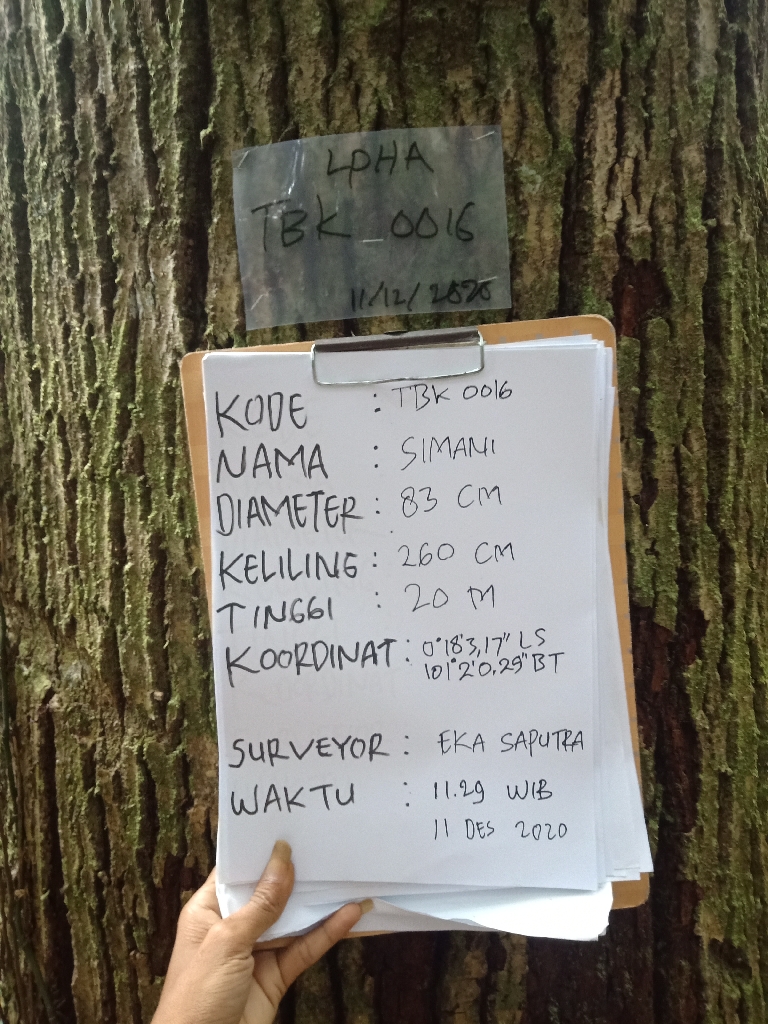 LPHA
TBK_0016
11/12/2020
KODE : TBK 0016
NAMA : SIMANI
DIAMETER : 83 CM
KELILING : 260 CM
TINGGI : 20 M
KOORDINAT : 0°18'3,17" LS
101°2'0,29" BT
SURVEYOR : EKA SAPUTRA
WAKTU : 11.29 WIB
11 DES 2020